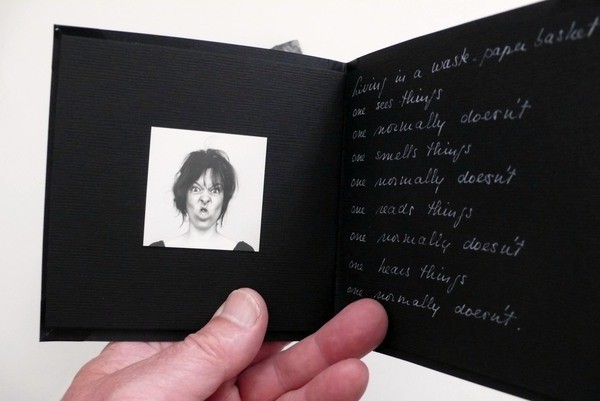 Living in a waste-paper basket
one sees things
one normally doesn't
one smells things
one normally doesn't
one reads things
one normally doesn't
one hears things
one normally doesn't.